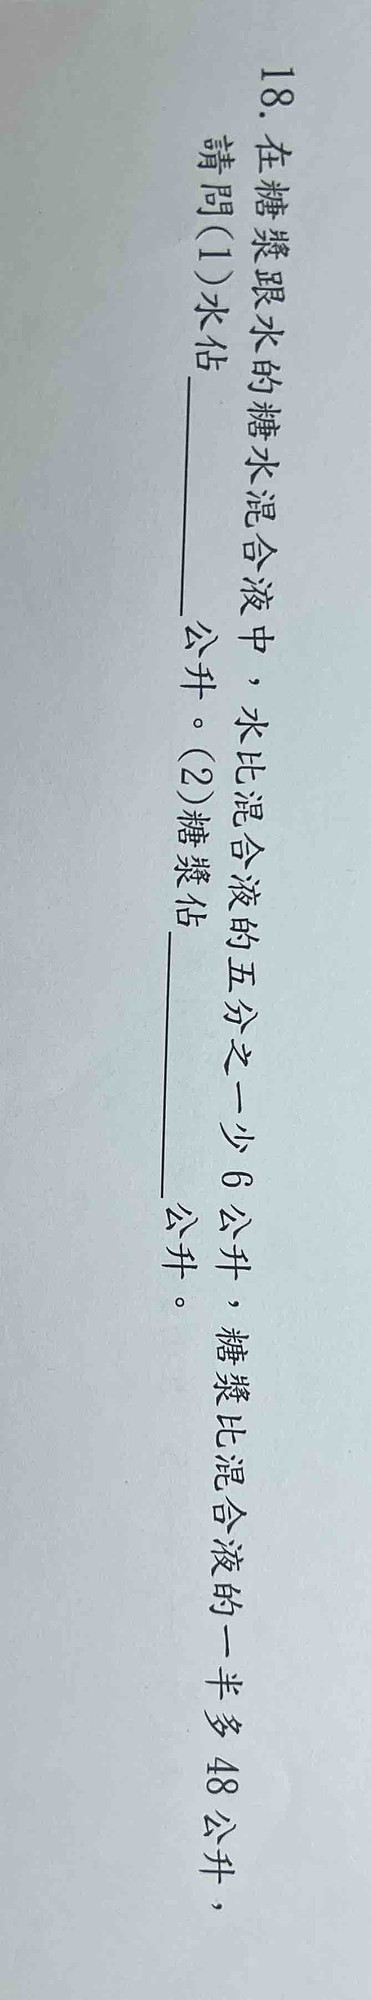 18. 在糖漿跟水的糖水混合液中，水比混合液的五分之一少6公升，糖漿比混合液的一半多48公升，
請問(1)水佔＿＿＿＿＿公升。(2)糖漿佔＿＿＿＿＿公升。